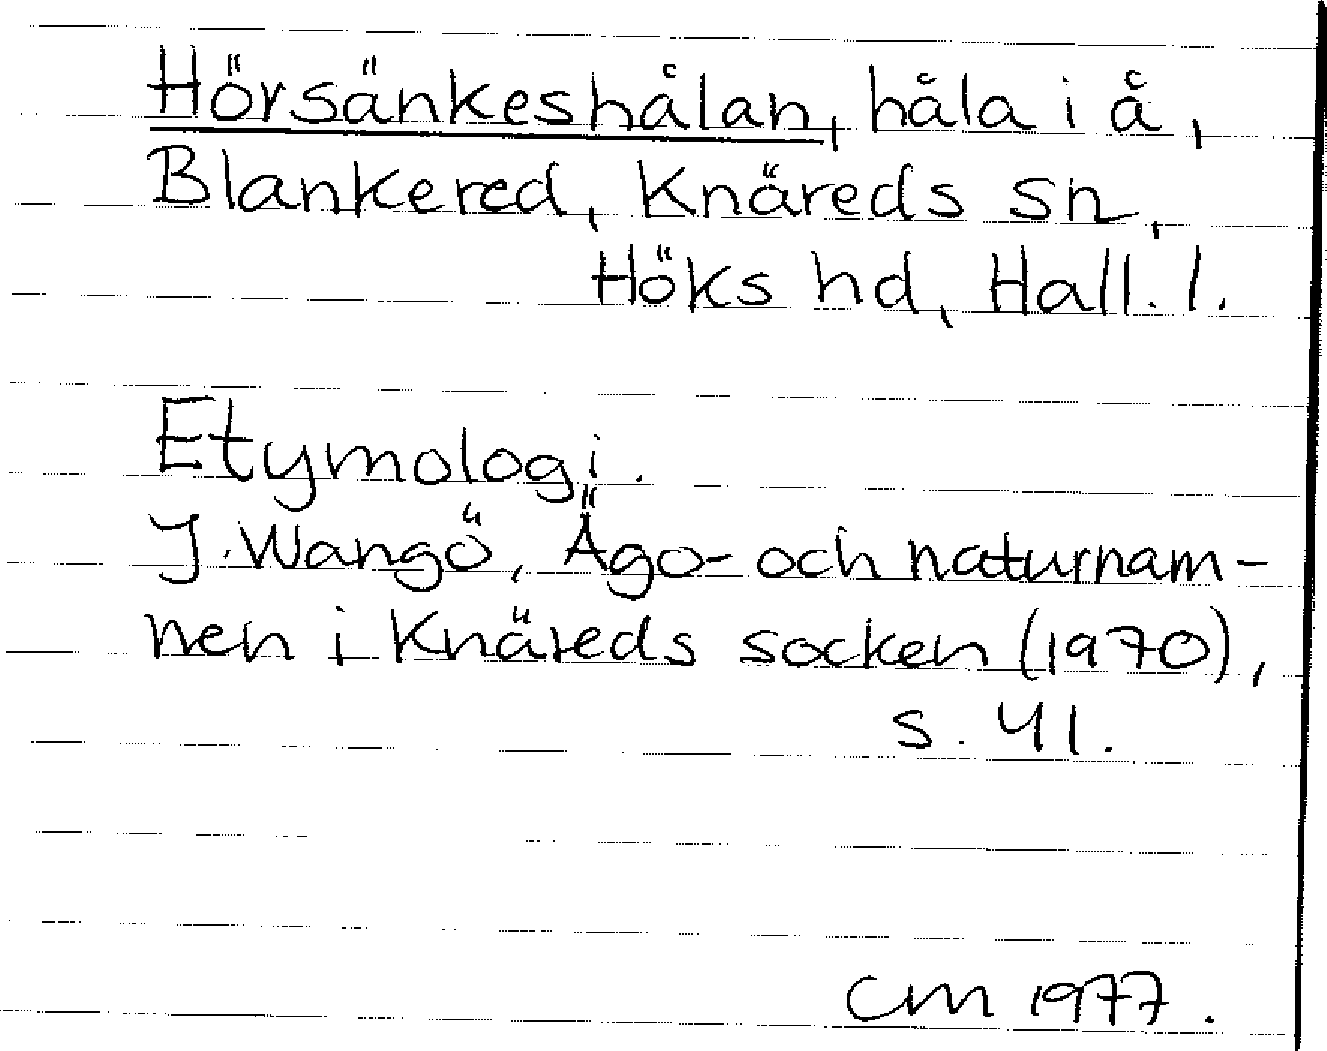 Hörsänkeshålan, håla i å,
Blankered, Knäreds sn,
Höks hd, Hall. l.
Etymologi.
J. Wangö, Ägo- och naturnam-
nen i Knäreds socken (1970),
s. 41.
CM 1977.